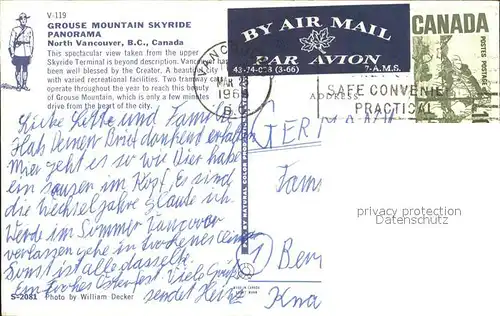 V-119
GROUSE MOUNTAIN SKYRIDE
PANORAMA
North Vancouver, B.C., Canada
This spectacular view taken from the upper
Skyride Terminal is beyond description. Vancouver has
been well blessed by the Creator. A beautiful city
with varied recreational facilities. Two tramway cars
operate throughout the year to reach this beauty
of Grouse Mountain, which is only a few minutes
drive from the heart of the city.
BY AIR MAIL
PAR AVION
43-74-028 (3-66) 7-A.M.S.
CANADA
POSTES POSTAGE
VANCOUVER
MAR
196
B.C.
ADDRESS
SAFE CONVENIE
PRACTICAL
Liebe Lotte und Familie
Hab Deinen Brief dankend erhalten
Mir geht es so wie Dir habe
ein sausen im Kopf, Es sind
die Wechseljahre glaube ich.
Werde im Sommer Vancover
verlassen gehe in trockenes Clima
Sonst ist alle dasselbe.
Ein frohes Osterfest. Viele Grüße
sendet Heinz
GERMANY
Fam
1) Ber
Kna
NATURAL COLOR PROD
privacy protection
Datenschutz
S-2081 Photo by William Decker